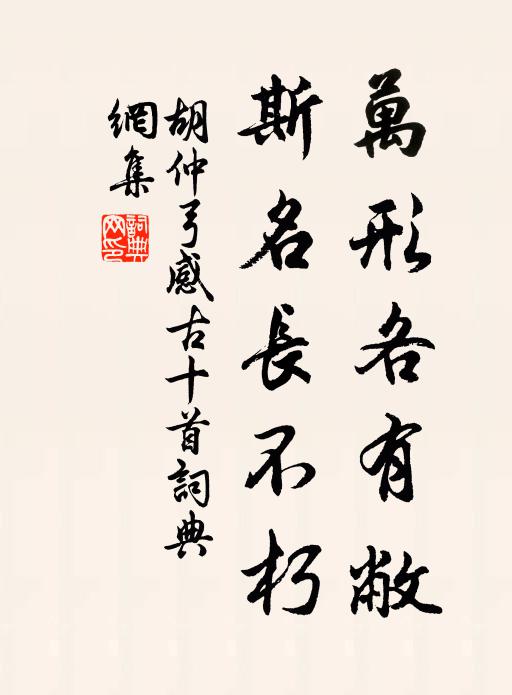 萬形各有敝
斯名長不朽
胡仲弓感古十首詞典
網集
詞典網印